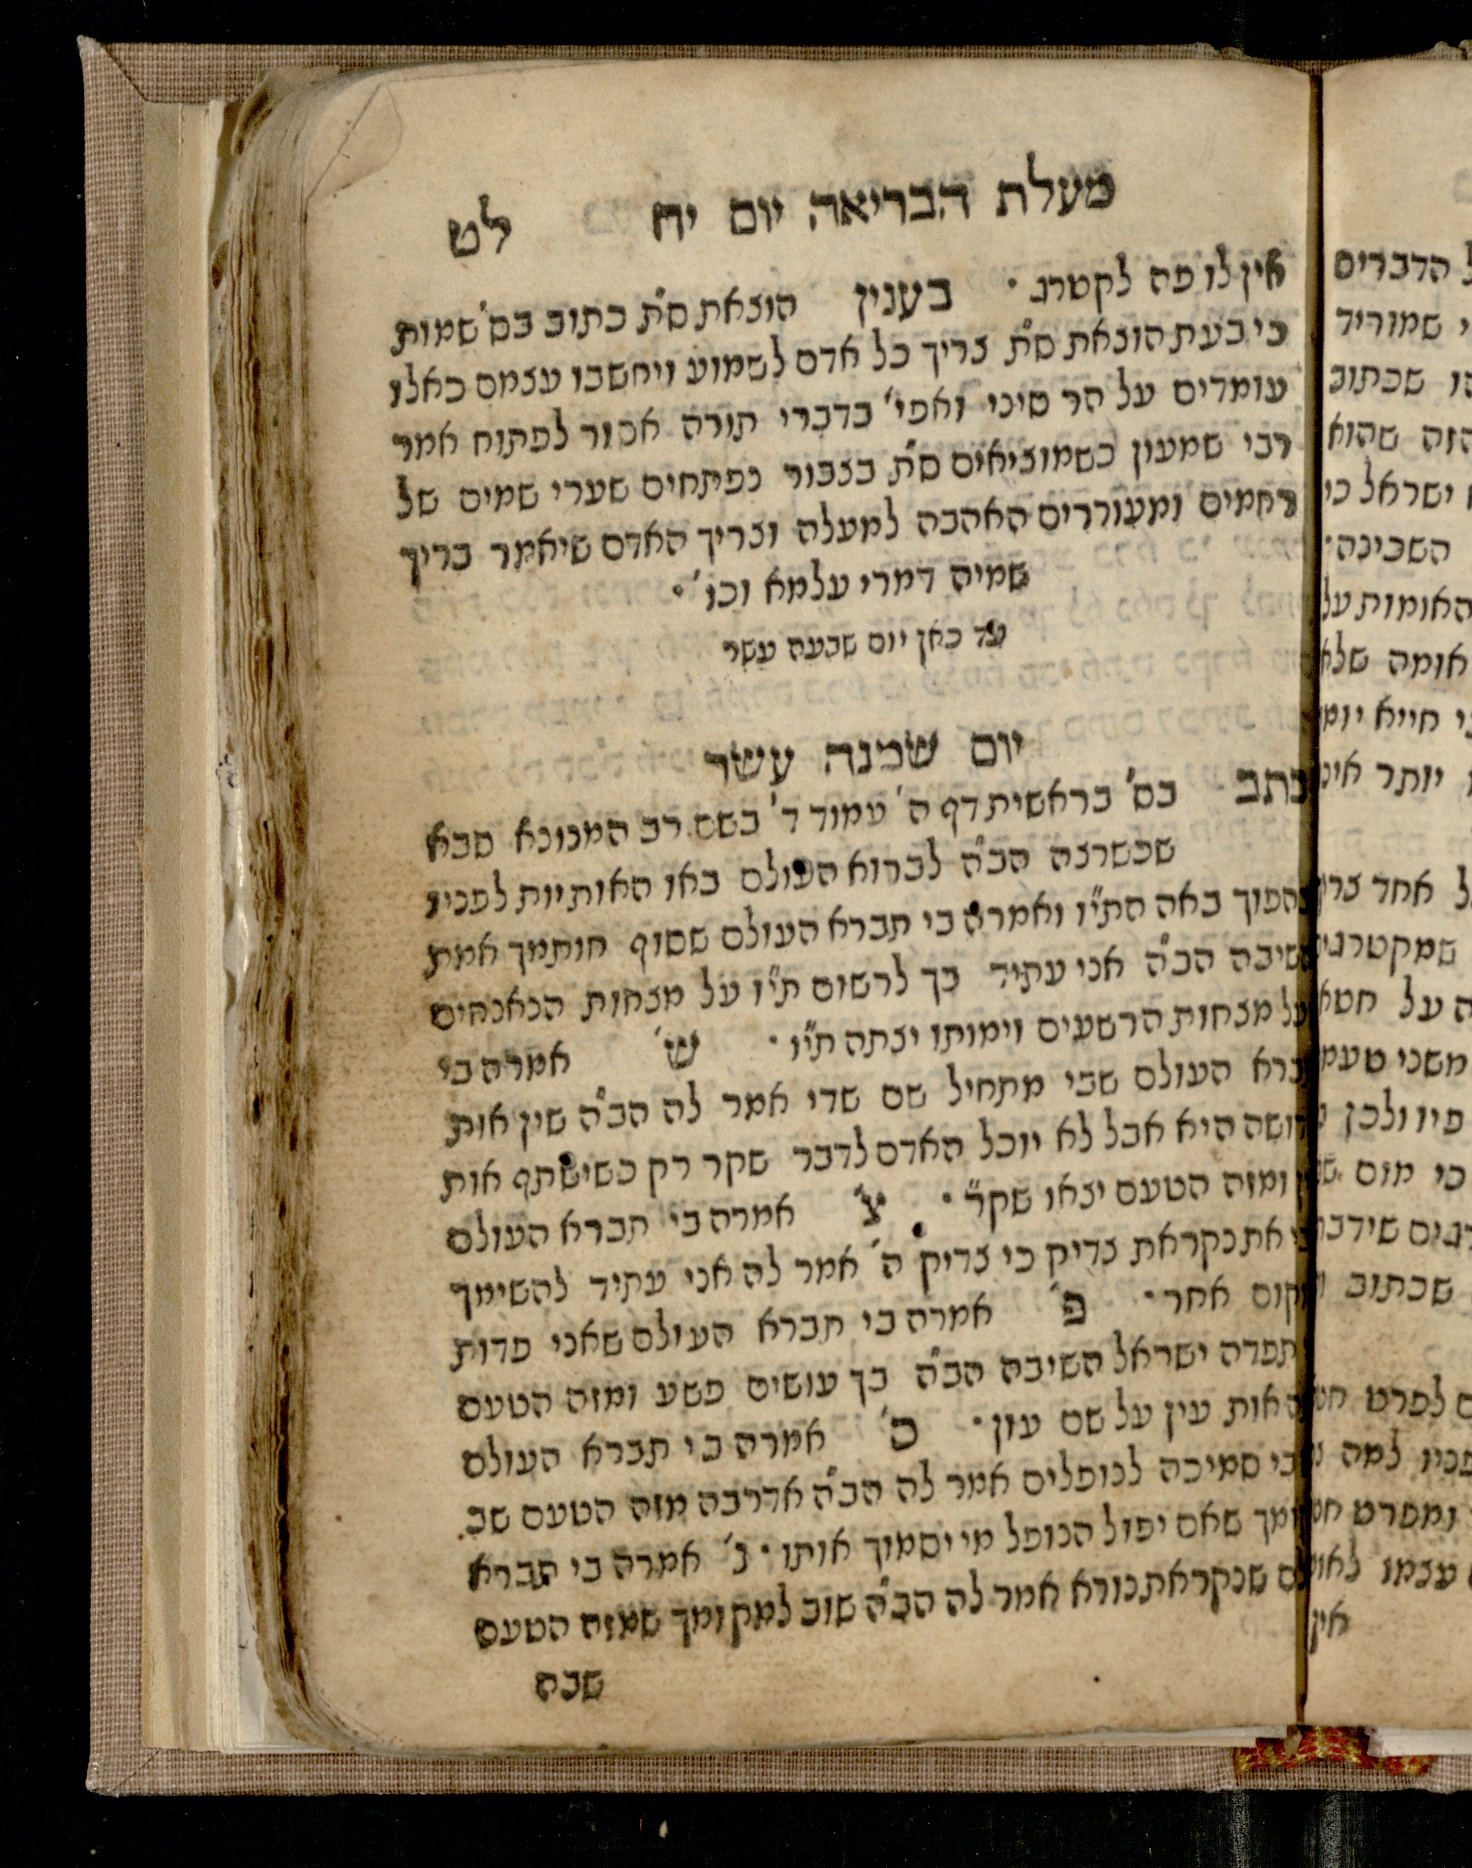 מעלת הבריאה יום יח לט
אין לו פה לקטרג · בענין הוצאת ס״ת כתוב בס׳ שמות
כי בעת הוצאת ס״ת צריך כל אדם לשמוע ויחשבו עצמם כאלו
עומדים על הר סיני ואפי׳ בדברי תורה אסור לפתוח אמר
רבי שמעון כשמוציאים ס״ת בצבור נפתחים שערי שמים של
רחמים ומעוררים האהבה למעלה וצריך האדם שיאמר בריך
שמיה דמרי עלמא וכו׳ ·
עד כאן יום שבעה עשר
יום שמנה עשר
כתב בס׳ בראשית דף ה׳ עמוד ד׳ בשם רב המנונא סבא
שכשרצה הב״ה לברוא העולם באו האותיות לפניו
בהפוך באה הת״יו ואמרה בי תברא העולם שסוף חותמך אמת
השיבה הב״ה אני עתיד בך לרשום ת״יו על מצחות הנאנחים
על מצחות הרשעים וימותו יצתה ת״יו · ש׳ אמרה בי
ברא העולם שבי מתחיל שם שדי אמר לה הב״ה שין אות
קדושה היא אבל לא יוכל האדם לדבר שקר רק כשישתף אות
ומזה הטעם יצאו שק״ר · צ׳ אמרה בי תברא העולם
את נקראת צדיק כי צדיק ה׳ אמר לה אני עתיד להשימך
מקום אחר · פ׳ אמרה בי תברא העולם שאני פדות
תפדה ישראל השיבה הב״ה בך עושים פשע ומזה הטעם
האות עין על שם עון · ס׳ אמרה בי תברא העולם
בי סמיכה לנופלים אמר לה הב״ה אדרבה מזה הטעם שב
שאם יפול הנופל מי יסמוך אותו · נ׳ אמרה בי תברא
שנקראת נורא אמר לה הב״ה שוב למקומך שמזה הטעם
שבה
הדברים
שמוריד
שכתוב
הזה שהוא
ישראל כי
השכינה·
האומות על
אומה שלא
חייא
יותר
אחד
שמקטרגים
על חטא
משני
פיו ולכן
כי מום
שכתוב
לפרט
למה
ומפרט
עצמו
אין